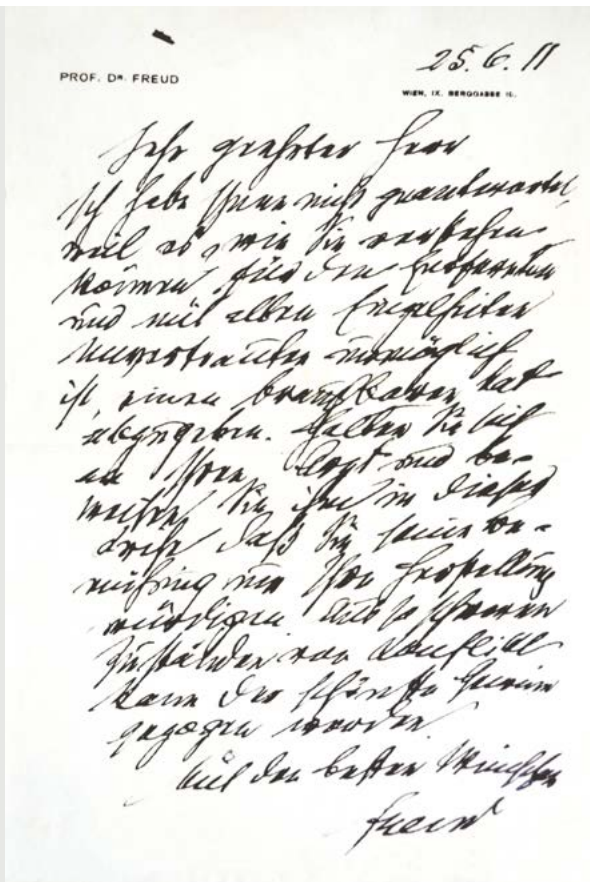 PROF. DR. FREUD
25.6.11
WIEN, IX. BERGGASSE 19.
Sehr geehrter Herr
Ich habe Ihnen nicht geantwortet,
weil es, wie Sie verstehen
können, für den Entfernten
und mit allen Einzelheiten
Unvertrauten unmöglich
ist, einen brauchbaren Rat
abzugeben. Halten Sie sich
an Ihren Arzt und be-
weisen Sie ihm in dieser
daß Sie seine Be-
mühung um Ihre Herstellung
würdigen. Aus so schweren
Zuständen von Konflikt
kann der schönste Gewinn
gezogen werden.
Mit den besten Wünschen
Freud